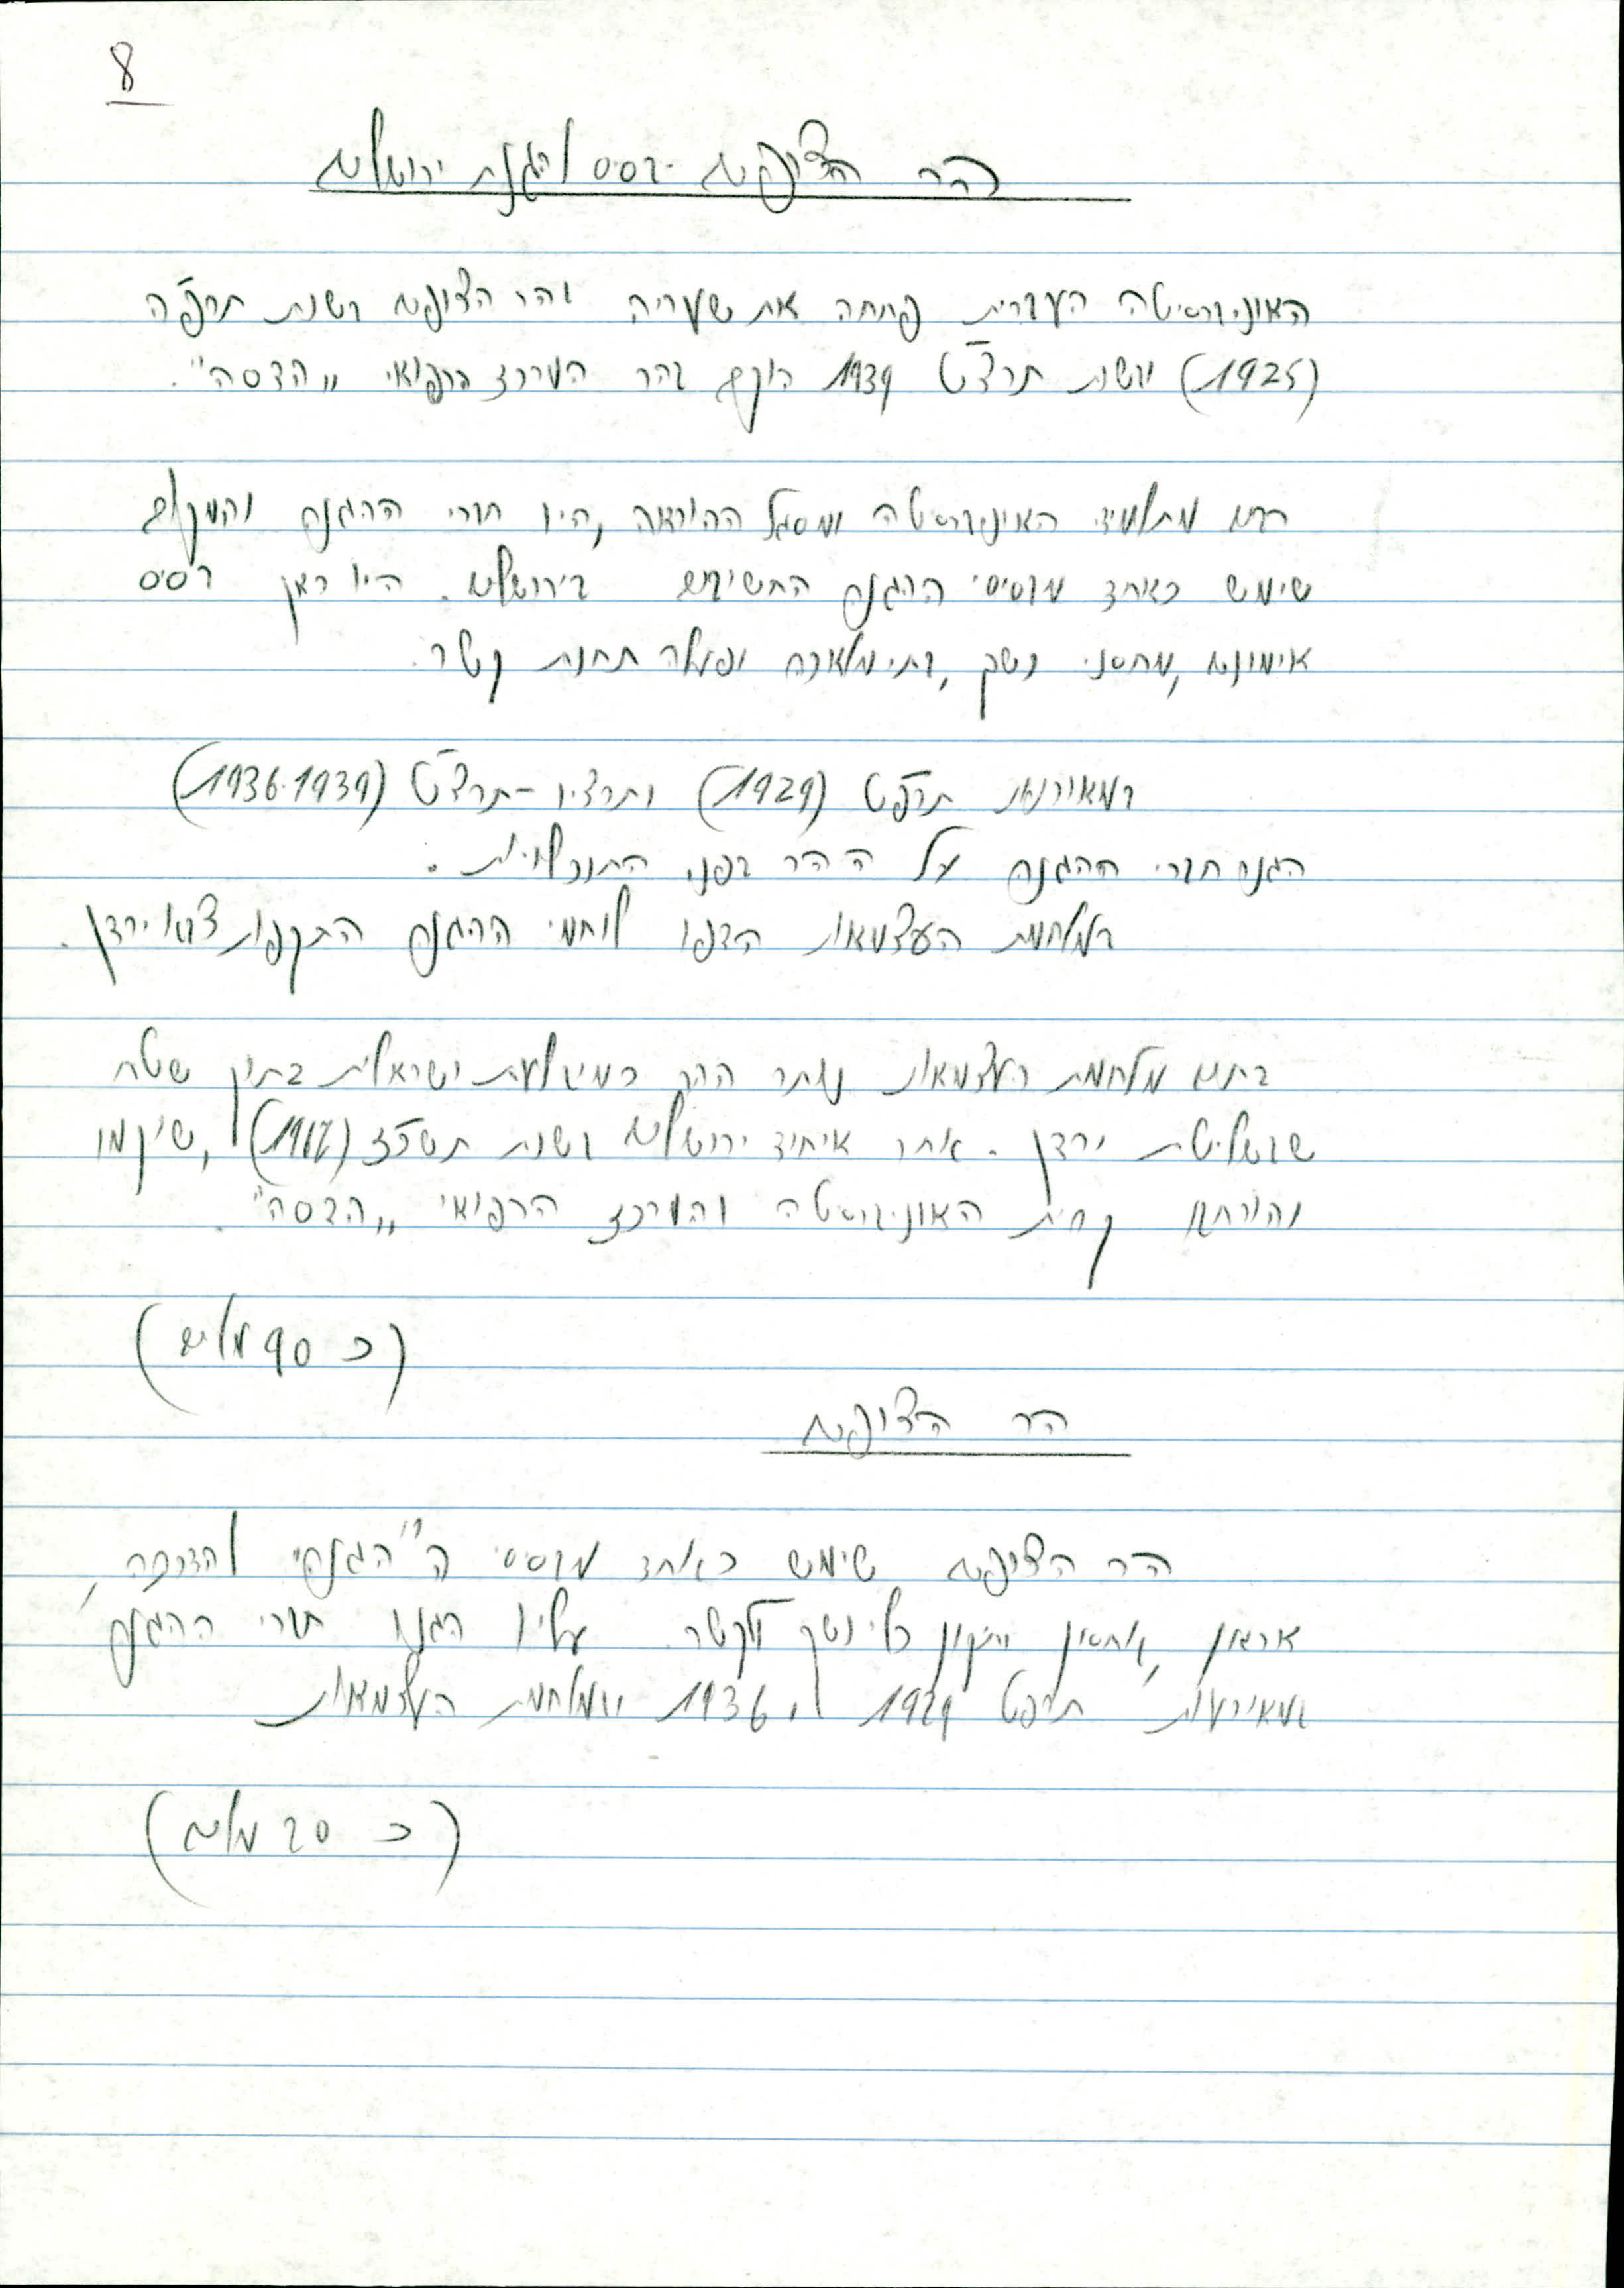 8
הר הצופים - בסיס להגנת ירושלים
האוניברסיטה העברית פתחה את שעריה בהר הצופים בשנת תרפ"ה
(1925) ובשנת תרצ"ט 1939 הוקם בהר המרכז הרפואי "הדסה".
רבים מתלמידי האוניברסיטה ומסגל ההוראה, היו חברי ההגנה והמקום
שימש כאחד מבסיסי ההגנה החשובים בירושלים. היו כאן בסיס
אימונים, מחסני נשק, בתי מלאכה ופעלה תחנת קשר.
במאורעות תרפ"ט (1929) ותרצ"ו - תרצ"ט (1936-1939)
הגנו חברי ההגנה על ההר בפני התנכלויות.
במלחמת העצמאות הדפו לוחמי ההגנה התקפות צבא ירדן.
בתום מלחמת העצמאות נותר ההר כמובלעת ישראלית בתוך שטח
שבשליטת ירדן. אחר איחוד ירושלים בשנת תשכ"ז (1967), שוקמו
והורחבו קרית האוניברסיטה והמרכז הרפואי "הדסה".
(כ 90 מלים)
הר הצופים
הר הצופים שימש כאחד מבסיסי ה"הגנה" להדרכה,
ארגון, אחסון ותיקון כלי נשק ולקשר. עליו הגנו חברי ההגנה,
במאורעות תרפט 1929 ו 1936 ובמלחמת העצמאות
(כ 20 מלים)